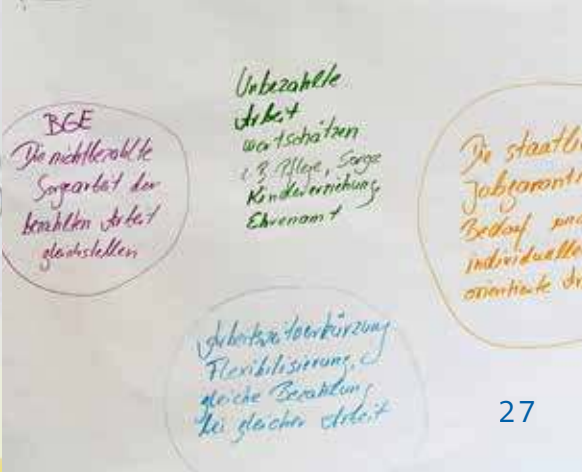 BGE
Die nichtbezahlte
Sorgearbeit der
bezahlten Arbeit
gleichstellen
Unbezahlte
Arbeit
wertschätzen
z.B. Pflege, Sorge
Kindererziehung
Ehrenamt
Die staatli
Jobgaranti
Bedarf
individuelle
orientierte
Arbeitszeitverkürzung
Flexibilisierung,
gleiche Bezahlung
bei gleicher Arbeit
27